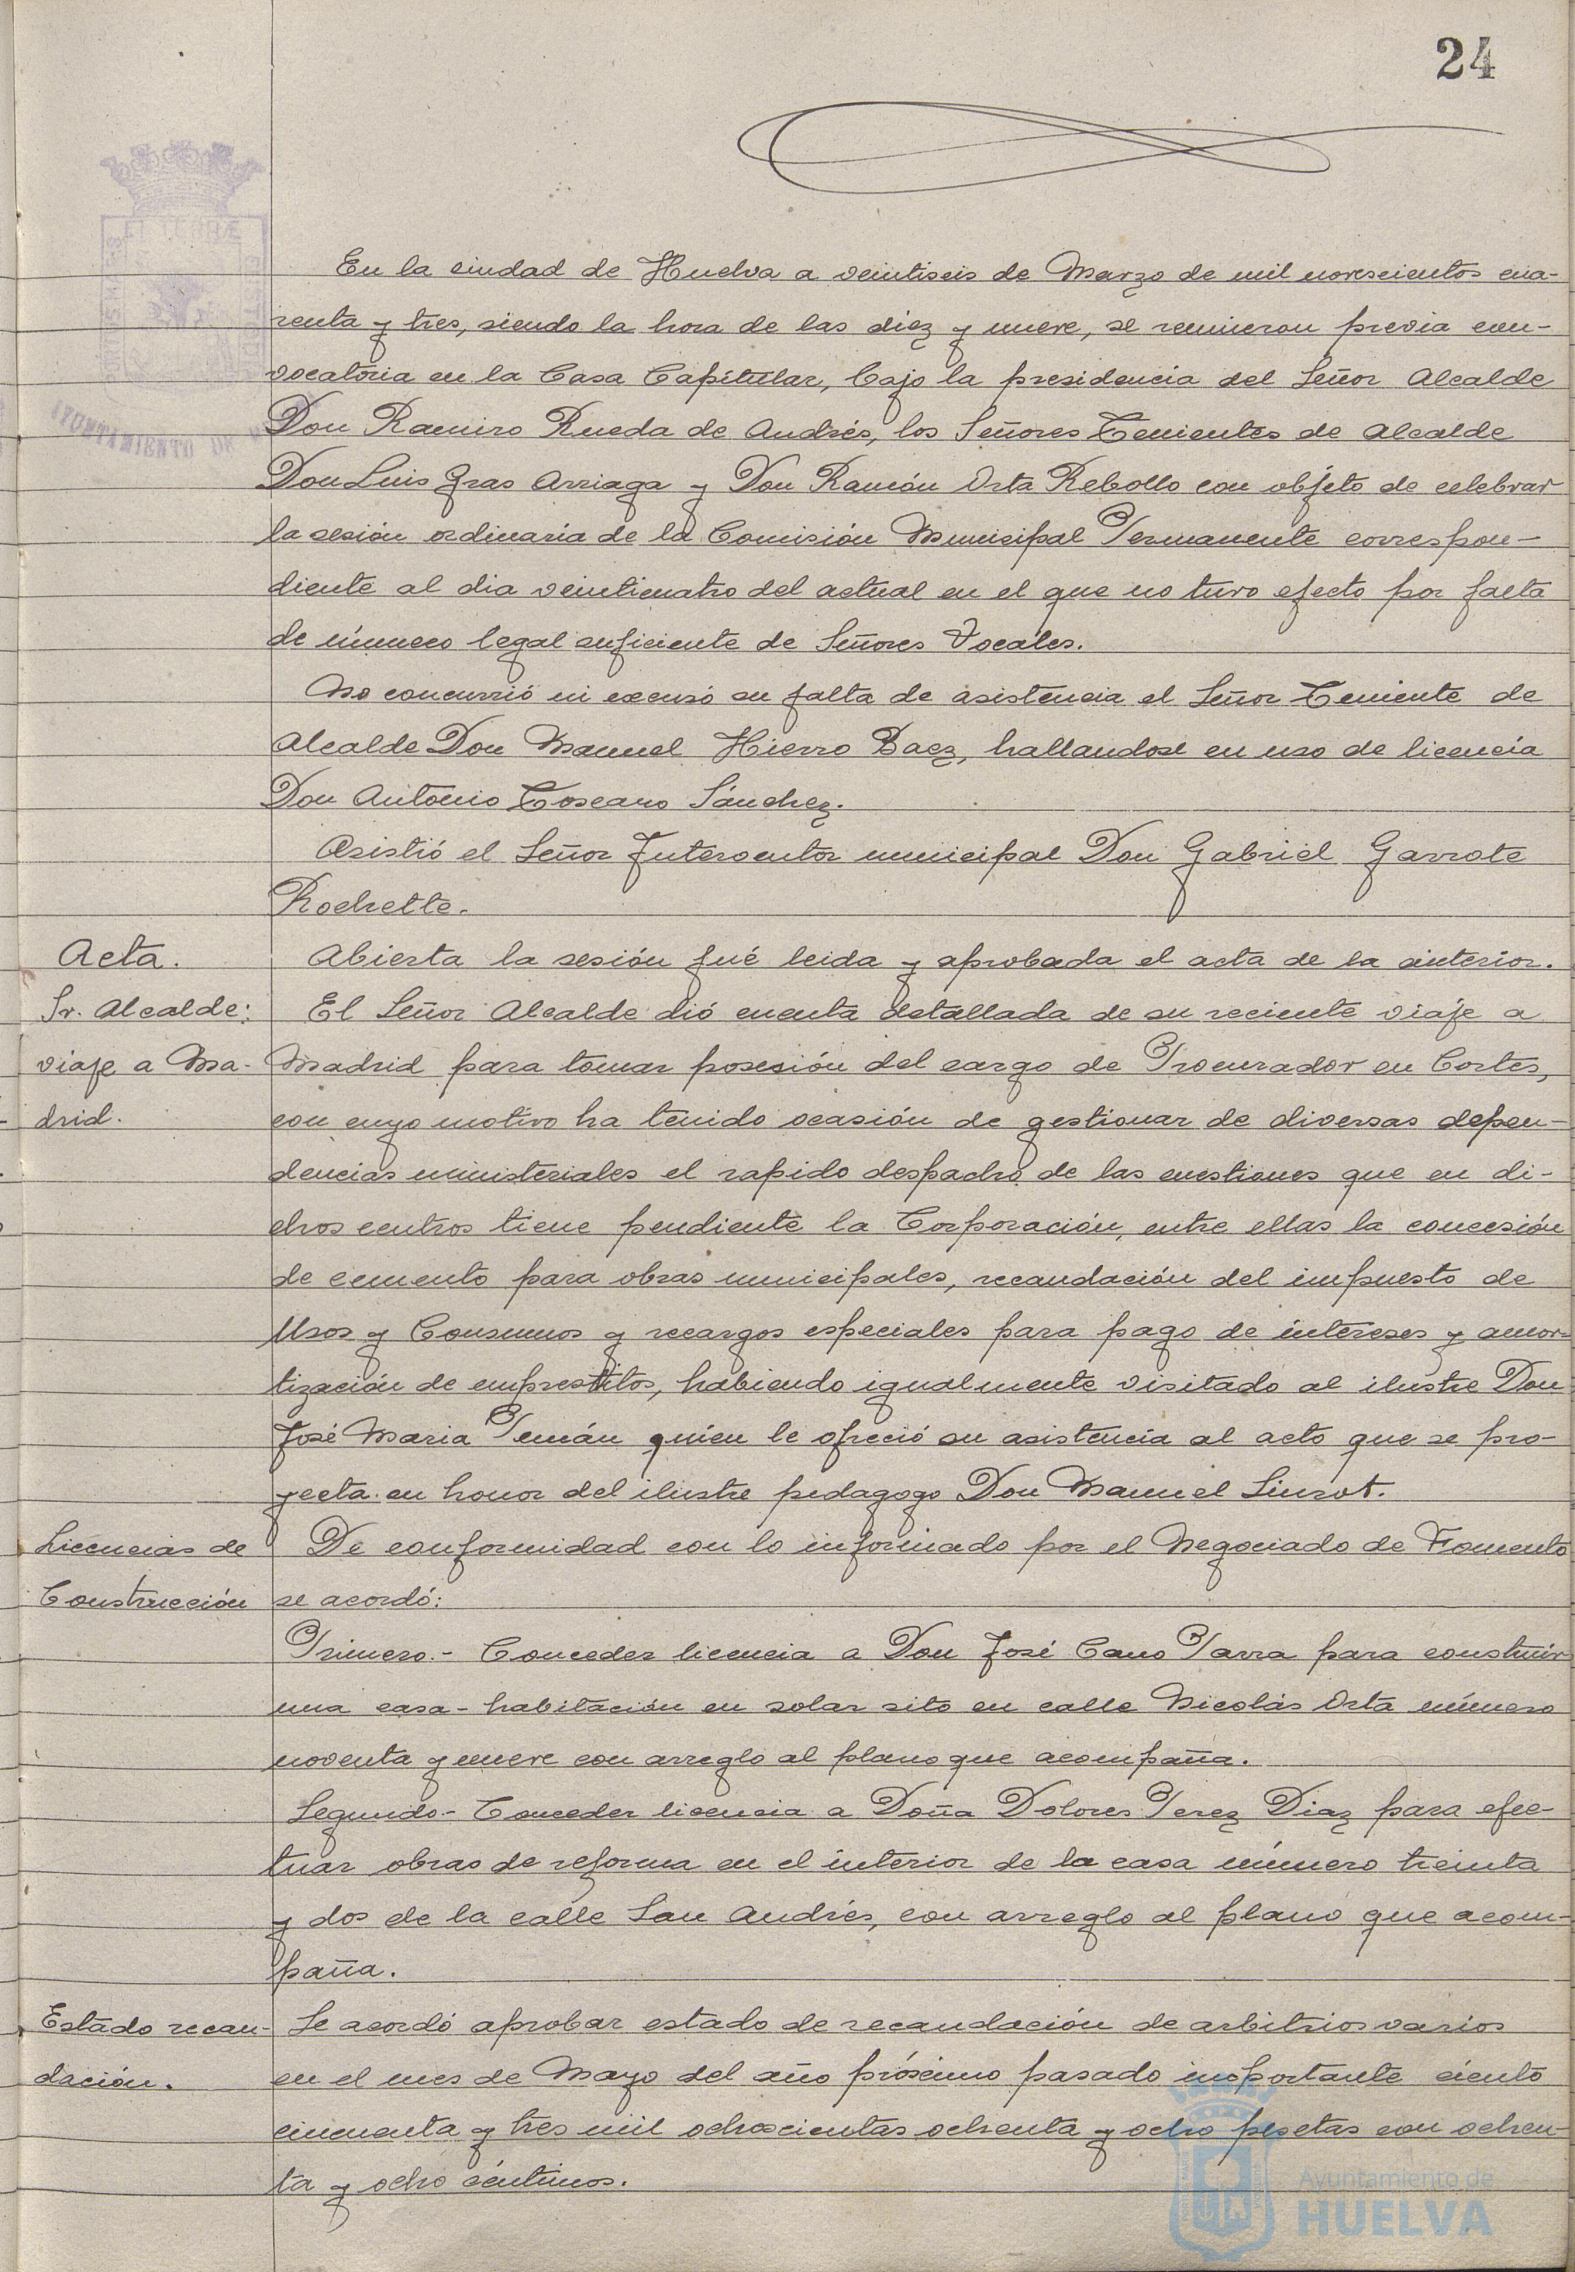 24
En la ciudad de Huelva a veintiseis de Marzo de mil novescientos cua-
renta y tres, siendo la hora de las diez y nueve, se reunieron previa con-
vocatoria en la Casa Capitular, bajo la presidencia del Señor Alcalde
Don Ramiro Rueda de Andrés, los Señores Tenientes de Alcalde
Don Luis Gras Arriaga y Don Ramón Orta Rebollo con objeto de celebrar
la sesión ordinaria de la Comisión Municipal Permanente correspon-
diente al dia veinticuatro del actual en el que no tuvo efecto por falta
de número legal suficiente de Señores Vocales.
No concurrió ni excusó su falta de asistencia el Señor Teniente de
Alcalde Don Manuel Hierro Baez, hallandose en uso de licencia
Don Antonio Toscano Sánchez.
Asistió el Señor Interventor municipal Don Gabriel Garrote
Rochette.
Acta.
Abierta la sesión fué leida y aprobada el acta de la anterior.
Sr. Alcalde:
viaje a Ma-
drid.
El Señor Alcalde dió cuenta detallada de su reciente viaje a
Madrid para tomar posesión del cargo de Procurador en Cortes,
con cuyo motivo ha tenido ocasión de gestionar de diversas depen-
dencias ministeriales el rapido despacho de las cuestiones que en di-
chos centros tiene pendiente la Corporación, entre ellas la concesión
de cemento para obras municipales, recaudación del impuesto de
Usos y Consumos y recargos especiales para pago de intereses y amor-
tización de emprestitos, habiendo igualmente visitado al ilustre Don
José Maria Pemán quien le ofreció su asistencia al acto que se pro-
yecta en honor del ilustre pedagogo Don Manuel Siurot.
Licencias de
Construcción
De conformidad con lo informado por el Negociado de Fomento
se acordó:
Primero.- Conceder licencia a Don José Cano Parra para construir
una casa-habitación en solar sito en calle Nicolás Orta número
noventa y nueve con arreglo al plano que acompaña.
Segundo- Conceder licencia a Doña Dolores Perez Diaz para efec-
tuar obras de reforma en el interior de la casa número treinta
y dos de la calle San Andrés, con arreglo al plano que acom-
paña.
Estado recau-
dación.
Se acordó aprobar estado de recaudación de arbitrios varios
en el mes de Mayo del año próximo pasado importante ciento
cincuenta y tres mil ochoscientas ochenta y ocho pesetas con ochen-
ta y ocho céntimos.
AYUNTAMIENTO DE
Ayuntamiento de
HUELVA